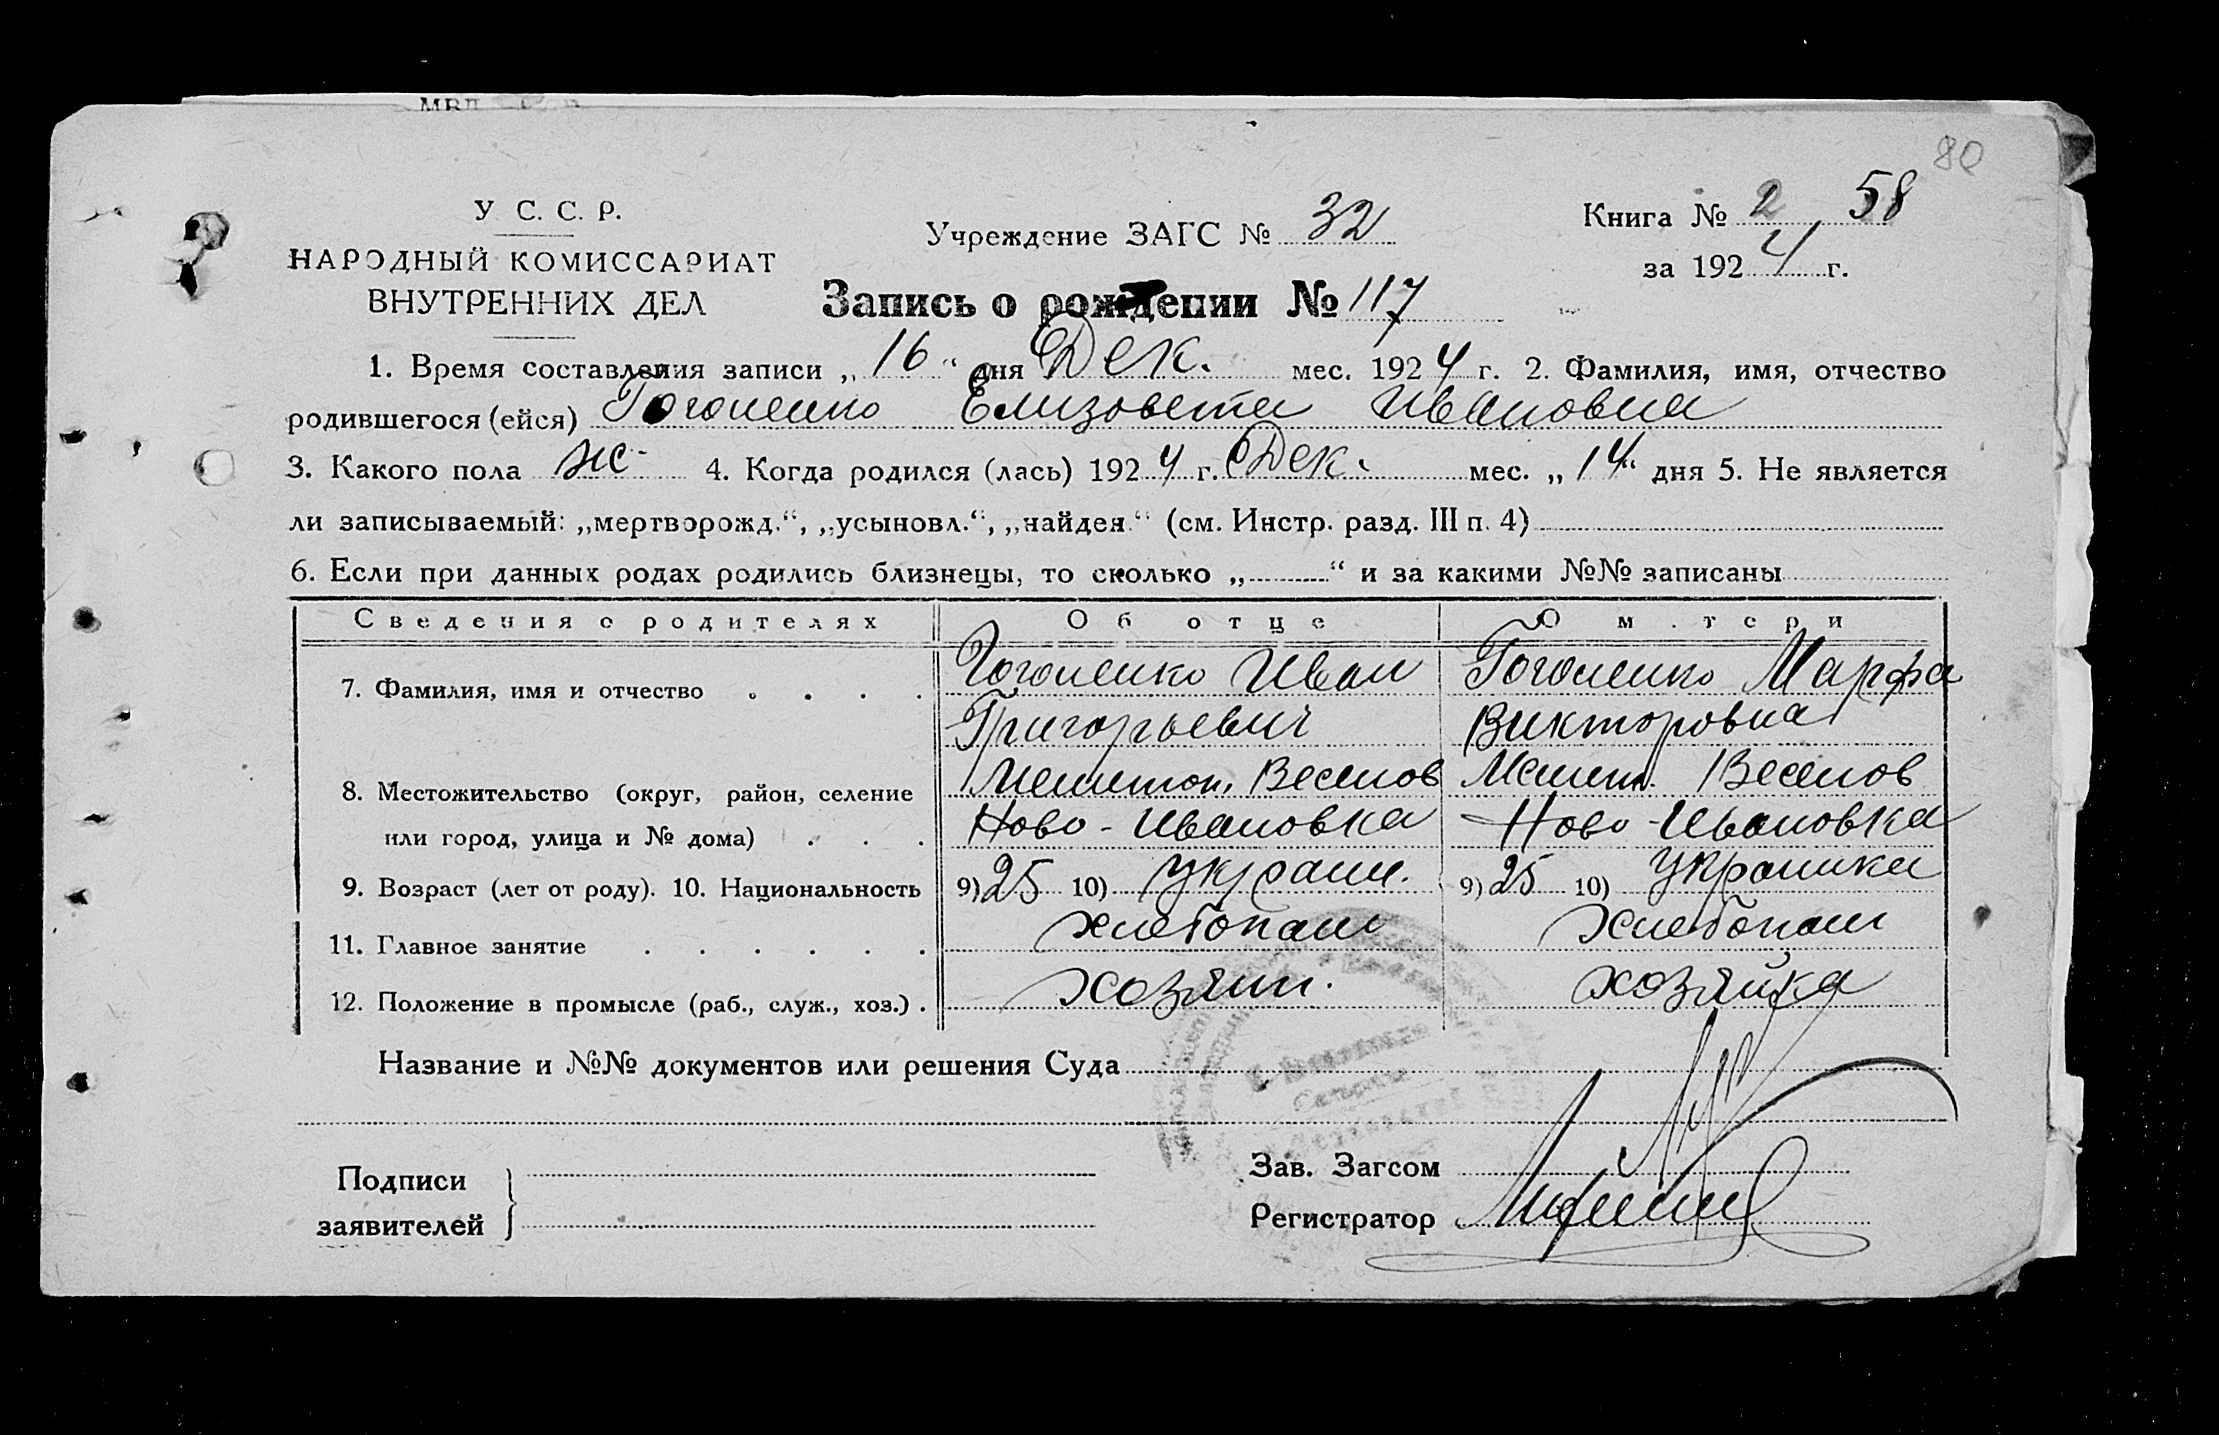 80
У С. С. Р.
НАРОДНЫЙ КОМИССАРИАТ
ВНУТРЕННИХ ДЕЛ
Учреждение ЗАГС № 32
Книга № 2 58
за 1924 г.
Запись о рождении № 117
1. Время составления записи „16“ дня Дек. мес. 1924 г. 2. Фамилия, имя, отчество
родившегося (ейся) Гоголенко Елизовета Ивановна
3. Какого пола ж 4. Когда родился (лась) 1924 г. Дек. мес. „14“ дня 5. Не является
ли записываемый: „мертворожд.“, „усыновл.“, „найден.“ (см. Инстр. разд. III п. 4)
6. Если при данных родах родились близнецы, то сколько „ “ и за какими №№ записаны
Сведения о родителях Об отце О м тери
7. Фамилия, имя и отчество Гоголенко Иван Гоголенко Марфа
Григорьевич Викторовна
8. Местожительство (округ, район, селение Мелитоп. Веселов Мелит. Веселов
или город, улица и № дома) Ново-Ивановка Ново-Ивановка
9. Возраст (лет от роду). 10. Национальность 9) 25 10) украин. 9) 25 10) украинка
11. Главное занятие хлебопаш хлебопаш
12. Положение в промысле (раб., служ., хоз.) хозяин. хозяйка
Название и №№ документов или решения Суда
Подписи
заявителей
Зав. Загсом
Регистратор